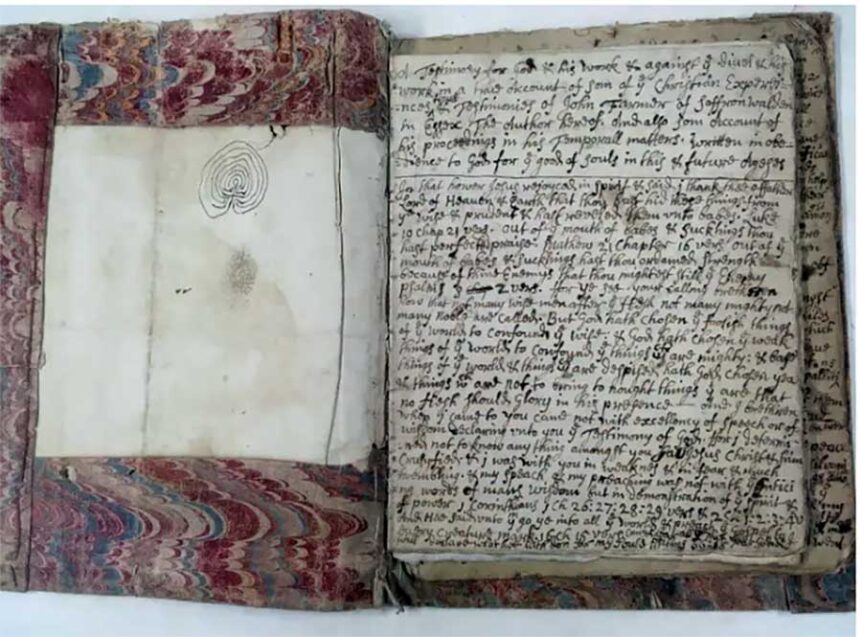 A Testimony for God & his work & against ye Divel & his
work in a true account of som of ye Christian Experie-
nces & Testimonies of John Farmer of Saffron walden
in Essex The Author hereof. And also som account of
his proceedings in his Temporall matters. written in obe-
dience to God for ye good of souls in this & future Ageges
In that hower Jesus rejoyced in spirit & said i thank thee o father
Lord of Heaven & Earth that thou hast hid these things from
ye wise & prudent & hast reveled them unto babes. Luke
10 chap 21 vers. out of ye mouth of babes & sucklings thou
hast perfected praise. Mathew 21 Chapter 16 vers. out of ye
mouth of babes & sucklings hast thou ordained strength
because of thine Enemys that thou mightest still ye Enemy
psalms 8 2 vers. for ye see your calling brethren
how that not many wise men after ye flesh not many mighty not
many noble are called. But God hath chosen ye foolish things
of ye world to confound ye wise & God hath chosen ye weak
things of ye world to confound ye things yt are mighty: & base
things of ye world & things yt are despised hath God chosen yea
& things wc are not to bring to nought things yt are that
no flesh should Glory in his presence and i brethren
when i came to you came not with excellency of speech or of
wisdom declaring unto you ye Testimony of God. for i determi-
ned not to know any thing amongst you save Jesus Christ & him
Crucified & i was with you in weaknes & in fear & much
trembling & my speach & my preaching was not with entici
ng words of mans wisdom but in demonstration of ye spirit &
of power 1 Corinthians 1 ch 26:27:28:29 vers & 2 ch 1:2:3:4 v
And Hee said unto ym go ye into all ye world & preach